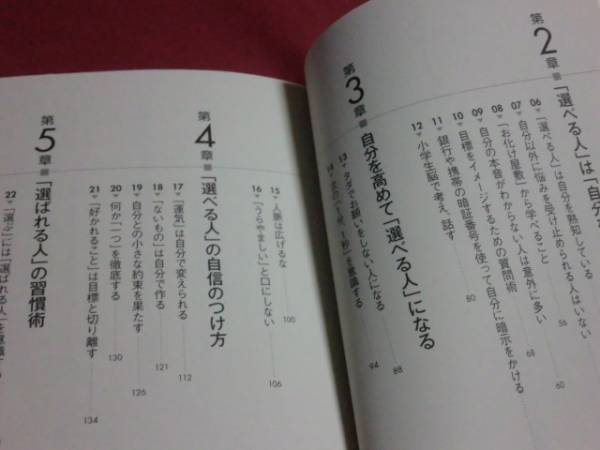 第2章 「選べる人」は「自分
06 「選べる人」は自分を熟知している
自分以外に悩みを受け止められる人はいない 56
07 「お化け屋敷」から学べること 60
08 自分の本音がわからない人は意外に多い 68
09 目標をイメージするための質問術
10 銀行や携帯の暗証番号を使って自分に暗示をかける
11 小学生脳で考え、話す 80
12
第3章 自分を高めて「選べる人」になる
13 タダでお願いをしない人になる 88
14 を意識する 94
15 人脈は広げるな 100
16 「うらやましい」と口にしない 106
第4章 「選べる人」の自信のつけ方
17 「運気」は自分で変えられる 112
18 「ないもの」は自分で作る 121
19 自分との小さな約束を果たす 126
20 何か「一つ」を徹底する 130
21 「好かれること」は目標と切り離す 134
第5章 「選ばれる人」の習慣術
22 「選ぶ」には「選ばれる人」を意識